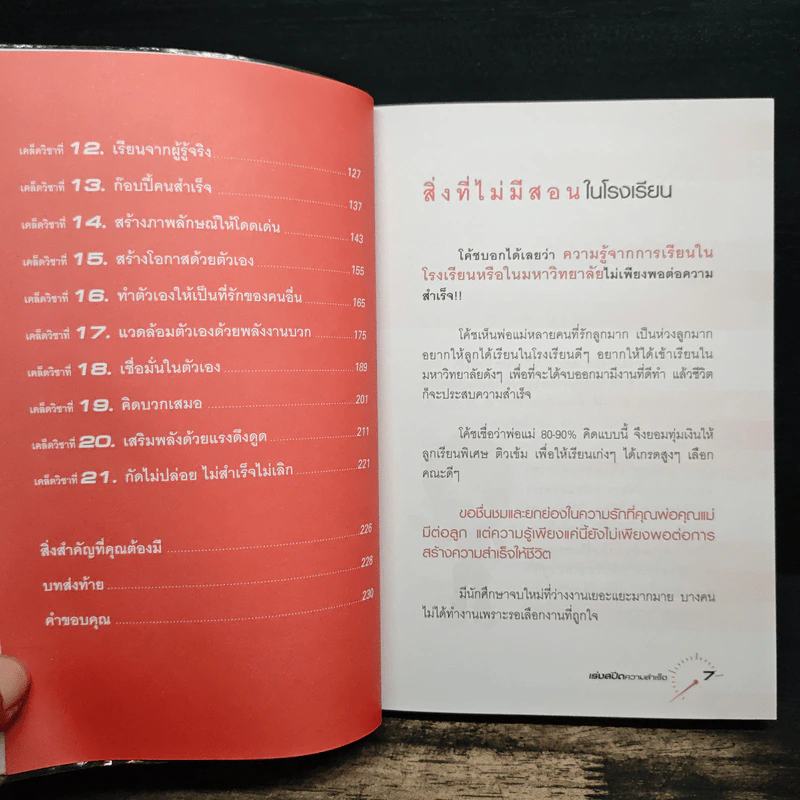 เคล็ดวิชาที่ 12. เรียนจากผู้รู้จริง 127
เคล็ดวิชาที่ 13. ก๊อบปี้คนสำเร็จ 137
เคล็ดวิชาที่ 14. สร้างภาพลักษณ์ให้โดดเด่น 143
เคล็ดวิชาที่ 15. สร้างโอกาสด้วยตัวเอง 155
เคล็ดวิชาที่ 16. ทำตัวเองให้เป็นที่รักของคนอื่น 165
เคล็ดวิชาที่ 17. แวดล้อมตัวเองด้วยพลังงานบวก 175
เคล็ดวิชาที่ 18. เชื่อมั่นในตัวเอง 189
เคล็ดวิชาที่ 19. คิดบวกเสมอ 201
เคล็ดวิชาที่ 20. เสริมพลังด้วยแรงดึงดูด 211
เคล็ดวิชาที่ 21. กัดไม่ปล่อย ไม่สำเร็จไม่เลิก 221
สิ่งสำคัญที่คุณต้องมี 226
บทส่งท้าย 228
คำขอบคุณ 230
สิ่งที่ไม่มีสอนในโรงเรียน
โค้ชบอกได้เลยว่า ความรู้จากการเรียนใน
โรงเรียนหรือในมหาวิทยาลัยไม่เพียงพอต่อความ
สำเร็จ!!
โค้ชเห็นพ่อแม่หลายคนที่รักลูกมาก เป็นห่วงลูกมาก
อยากให้ลูกได้เรียนในโรงเรียนดีๆ อยากให้ได้เข้าเรียนใน
มหาวิทยาลัยดังๆ เพื่อที่จะได้จบออกมามีงานที่ดีทำ แล้วชีวิต
ก็จะประสบความสำเร็จ
โค้ชเชื่อว่าพ่อแม่ 80-90% คิดแบบนี้ จึงยอมทุ่มเงินให้
ลูกเรียนพิเศษ ติวเข้ม เพื่อให้เรียนเก่งๆ ได้เกรดสูงๆ เลือก
คณะดีๆ
ขอชื่นชมและยกย่องในความรักที่คุณพ่อคุณแม่
มีต่อลูก แต่ความรู้เพียงแค่นี้ยังไม่เพียงพอต่อการ
สร้างความสำเร็จให้ชีวิต
มีนักศึกษาจบใหม่ที่ว่างงานเยอะแยะมากมาย บางคน
ไม่ได้ทำงานเพราะรอเลือกงานที่ถูกใจ
เร่งสปีดความสำเร็จ 7